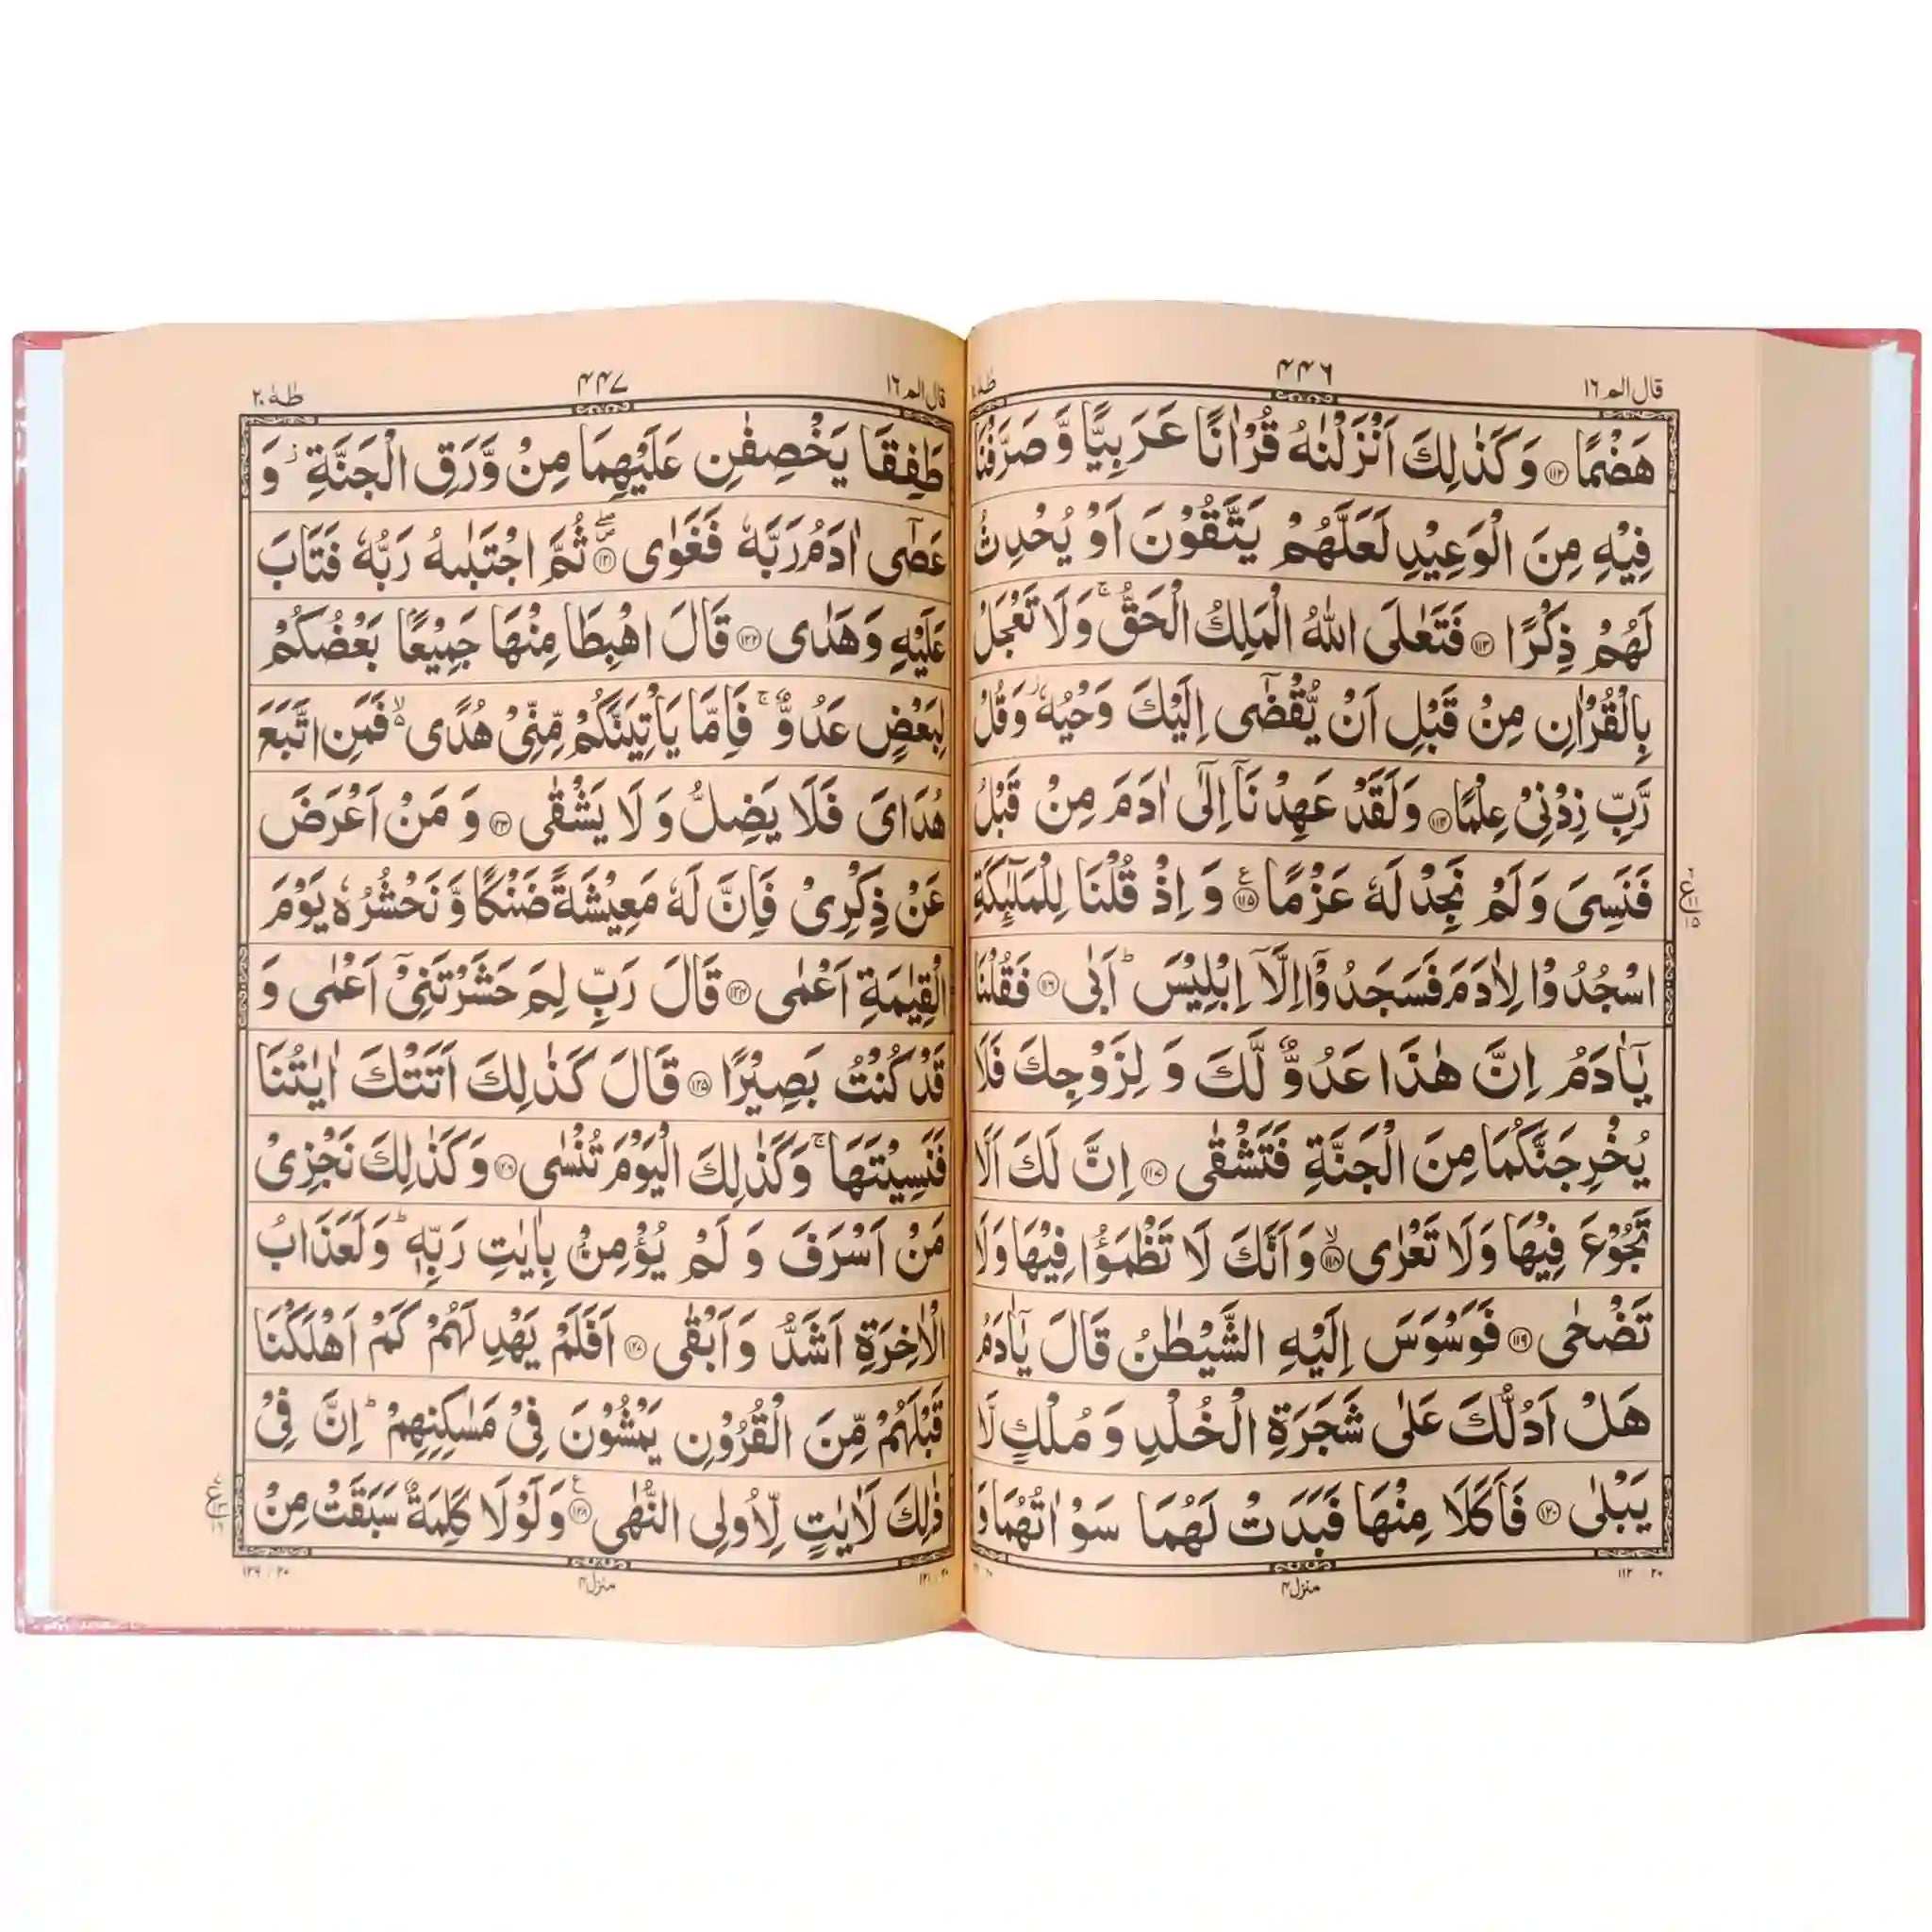 قال الم ١٦
٤٤٦
طٰهٰ
هَضْمًا ﴿۱۱۲﴾ وَكَذٰلِكَ اَنْزَلْنٰهُ قُرْاٰنًا عَرَبِيًّا وَّ صَرَّفْنَا
فِيْهِ مِنَ الْوَعِيْدِ لَعَلَّهُمْ يَتَّقُوْنَ اَوْ يُحْدِثُ
لَهُمْ ذِكْرًا ﴿۱۱۳﴾ فَتَعٰلَى اللّٰهُ الْمَلِكُ الْحَقُّ ۚ وَلَا تَعْجَلْ
بِالْقُرْاٰنِ مِنْ قَبْلِ اَنْ يُّقْضٰٓى اِلَيْكَ وَحْيُهٗ ۫ وَقُلْ
رَّبِّ زِدْنِيْ عِلْمًا ﴿۱۱۴﴾ وَلَقَدْ عَهِدْنَاۤ اِلٰۤى اٰدَمَ مِنْ قَبْلُ
فَنَسِيَ وَلَمْ نَجِدْ لَهٗ عَزْمًا ﴿۱۱۵﴾ وَ اِذْ قُلْنَا لِلْمَلٰٓئِكَةِ
اسْجُدُوْا لِاٰدَمَ فَسَجَدُوْۤا اِلَّاۤ اِبْلِيْسَ ؕ اَبٰى ﴿۱۱۶﴾ فَقُلْنَا
يٰۤاٰدَمُ اِنَّ هٰذَا عَدُوٌّ لَّكَ وَ لِزَوْجِكَ فَلَا
يُخْرِجَنَّكُمَا مِنَ الْجَنَّةِ فَتَشْقٰى ﴿۱۱۷﴾ اِنَّ لَكَ اَلَّا
تَجُوْعَ فِيْهَا وَلَا تَعْرٰى ﴿۱۱۸﴾ۙ وَاَنَّكَ لَا تَظْمَؤُا فِيْهَا وَلَا
تَضْحٰى ﴿۱۱۹﴾ فَوَسْوَسَ اِلَيْهِ الشَّيْطٰنُ قَالَ يٰۤاٰدَمُ
هَلْ اَدُلُّكَ عَلٰى شَجَرَةِ الْخُلْدِ وَ مُلْكٍ لَّا
يَبْلٰى ﴿۱۲۰﴾ فَاَكَلَا مِنْهَا فَبَدَتْ لَهُمَا سَوْاٰتُهُمَا وَ
٢٠ ١١٢
منزل ۴
قال الم ١٦
٤٤٧
طٰهٰ ٢٠
طَفِقَا يَخْصِفٰنِ عَلَيْهِمَا مِنْ وَّرَقِ الْجَنَّةِ ۫ وَ
عَصٰۤى اٰدَمُ رَبَّهٗ فَغَوٰى ﴿۱۲۱﴾ ثُمَّ اجْتَبٰىهُ رَبُّهٗ فَتَابَ
عَلَيْهِ وَهَدٰى ﴿۱۲۲﴾ قَالَ اهْبِطَا مِنْهَا جَمِيْعًا بَعْضُكُمْ
لِبَعْضٍ عَدُوٌّ ۚ فَاِمَّا يَاْتِيَنَّكُمْ مِّنِّيْ هُدًى ۙ۬ فَمَنِ اتَّبَعَ
هُدَايَ فَلَا يَضِلُّ وَ لَا يَشْقٰى ﴿۱۲۳﴾ وَ مَنْ اَعْرَضَ
عَنْ ذِكْرِيْ فَاِنَّ لَهٗ مَعِيْشَةً ضَنْكًا وَّ نَحْشُرُهٗ يَوْمَ
الْقِيٰمَةِ اَعْمٰى ﴿۱۲۴﴾ قَالَ رَبِّ لِمَ حَشَرْتَنِيْۤ اَعْمٰى وَ
قَدْ كُنْتُ بَصِيْرًا ﴿۱۲۵﴾ قَالَ كَذٰلِكَ اَتَتْكَ اٰيٰتُنَا
فَنَسِيْتَهَا ۚ وَكَذٰلِكَ الْيَوْمَ تُنْسٰى ﴿۱۲۶﴾ وَكَذٰلِكَ نَجْزِيْ
مَنْ اَسْرَفَ وَ لَمْ يُؤْمِنْۢ بِاٰيٰتِ رَبِّهٖ ؕ وَلَعَذَابُ
الْاٰخِرَةِ اَشَدُّ وَ اَبْقٰى ﴿۱۲۷﴾ اَفَلَمْ يَهْدِ لَهُمْ كَمْ اَهْلَكْنَا
قَبْلَهُمْ مِّنَ الْقُرُوْنِ يَمْشُوْنَ فِيْ مَسٰكِنِهِمْ ؕ اِنَّ فِيْ
ذٰلِكَ لَاٰيٰتٍ لِّاُولِي النُّهٰى ﴿۱۲۸﴾ وَلَوْلَا كَلِمَةٌ سَبَقَتْ مِنْ
٢٠ : ١٢١
منزل ۴
٢٠ : ١٢٩